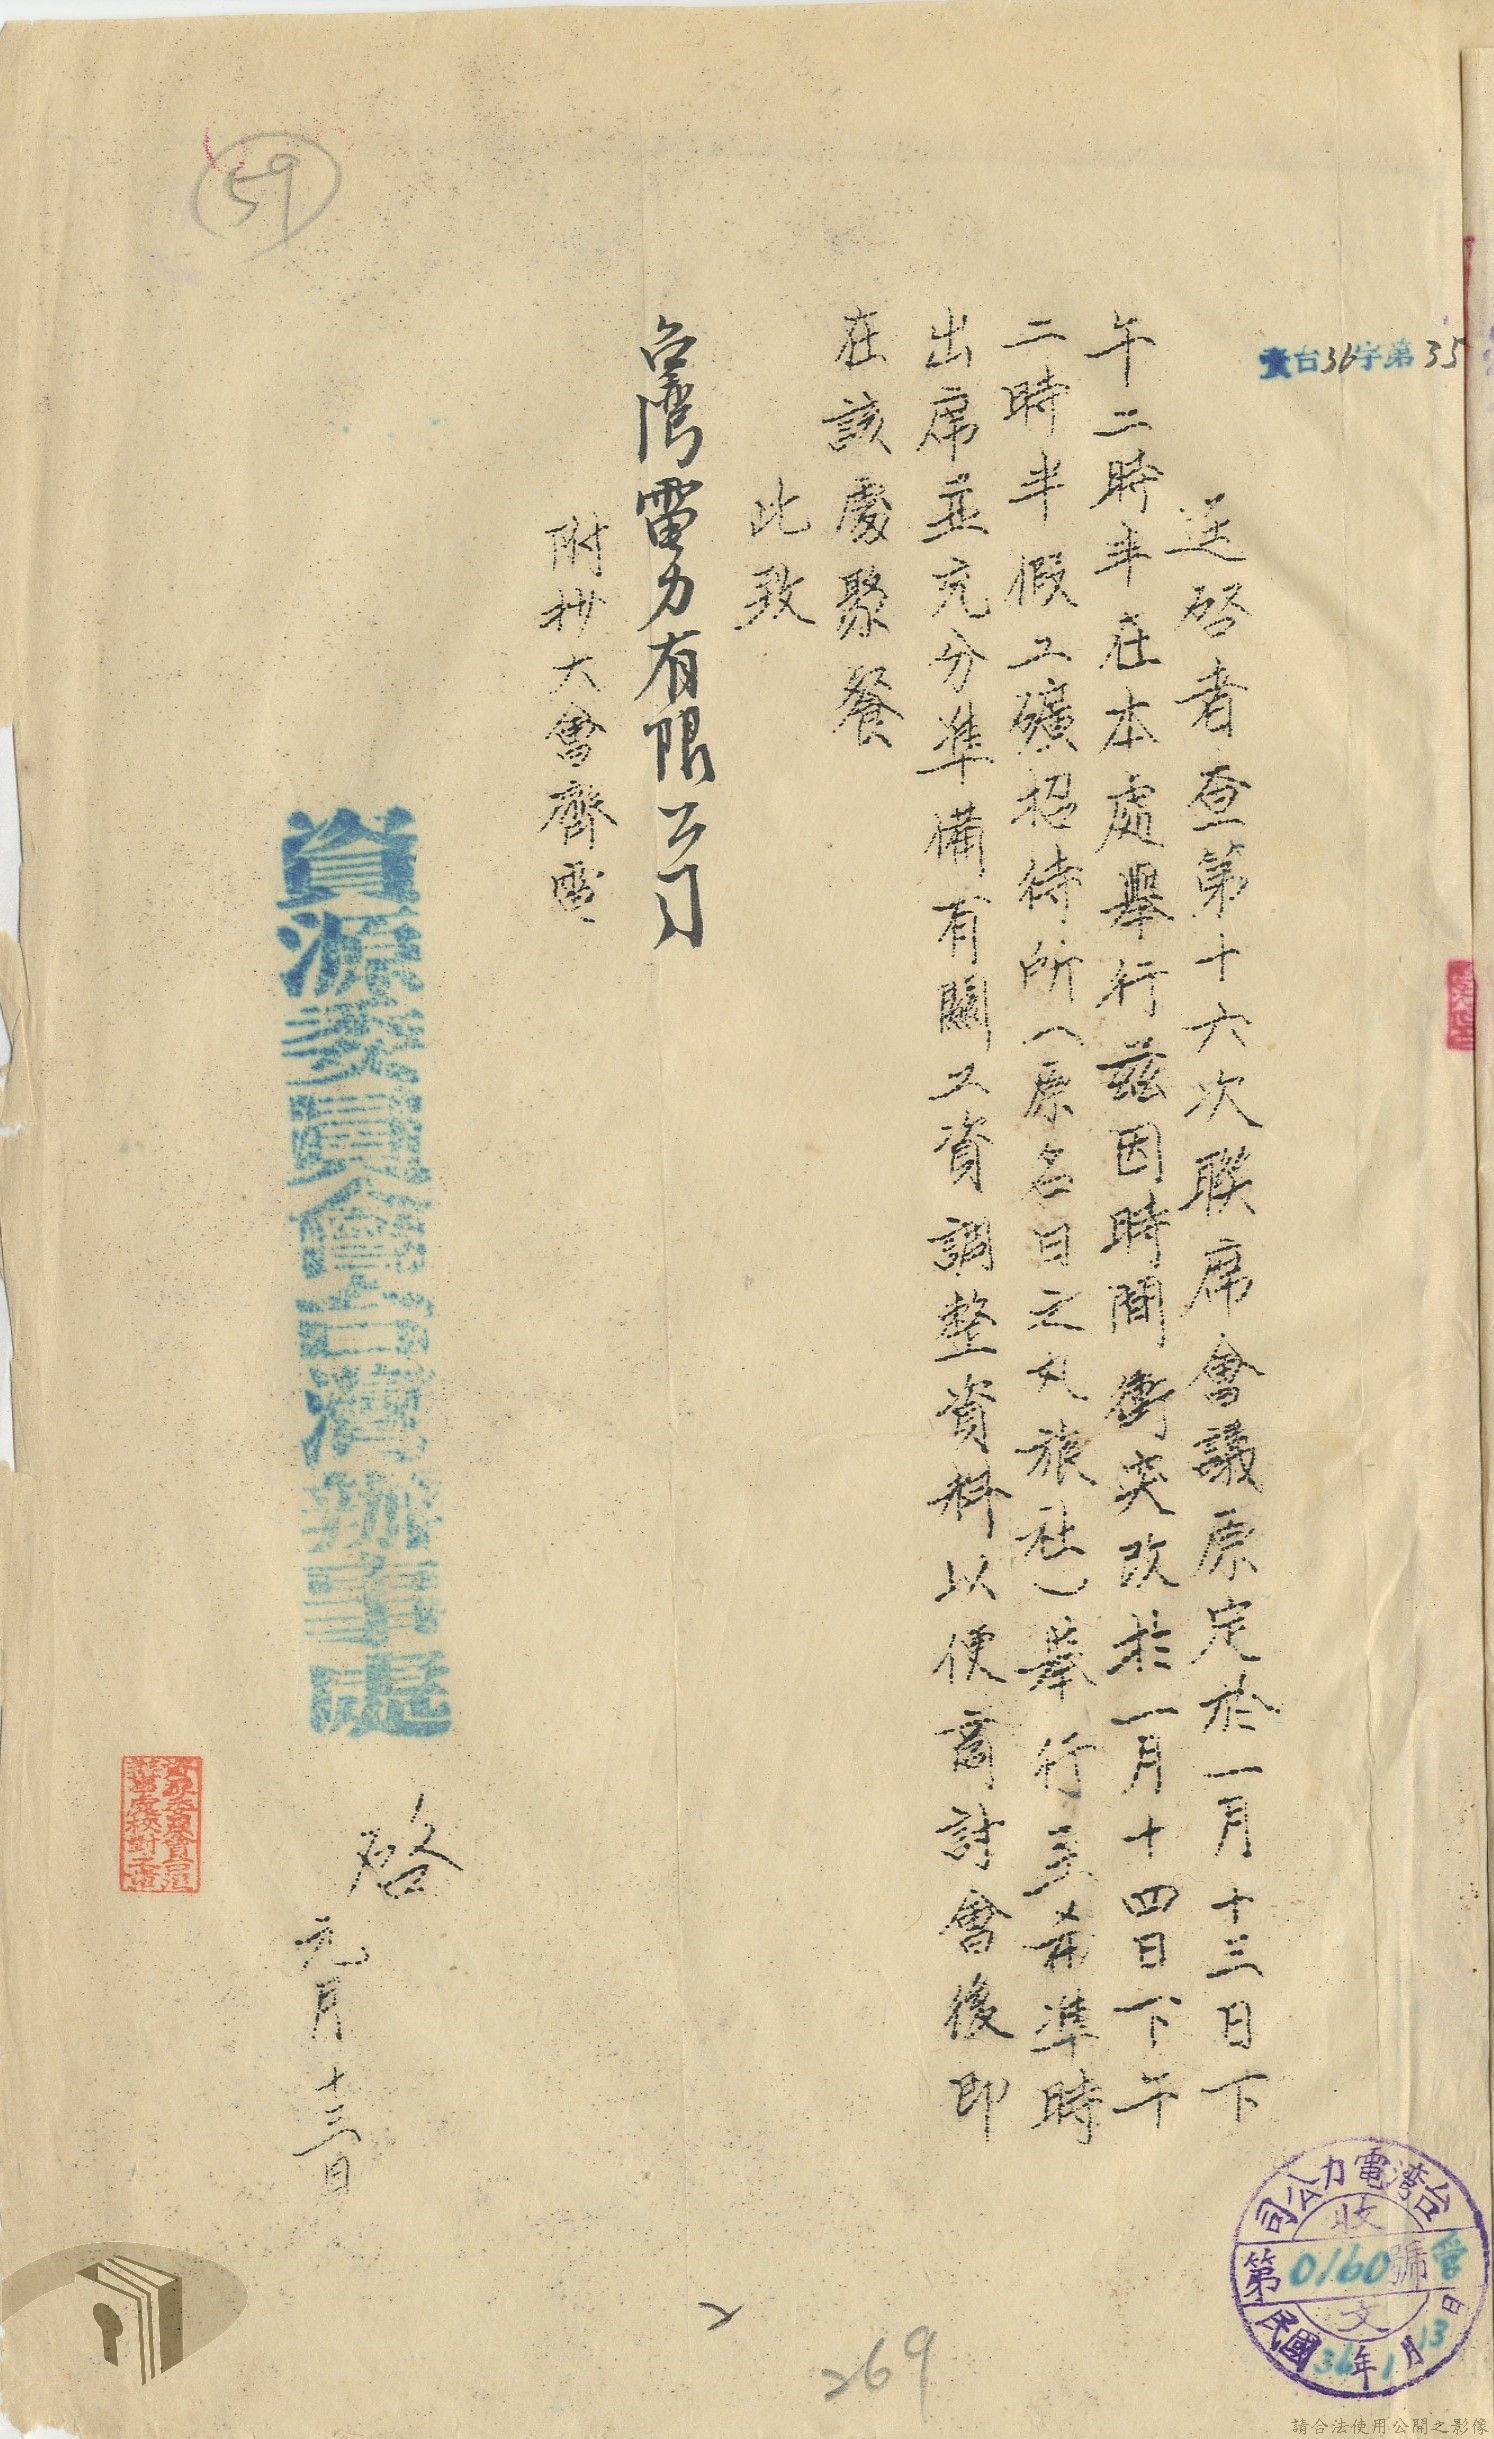 資台36字第35
逕啓者查第十六次聯席會議原定於一月十三日下
午二時半在本處舉行茲因時間衝突改於一月十四日下午
二時半假工礦招待所(原名日之丸旅社)舉行至希準時
出席並充分準備有關工資調整資料以便商討會後即
在該處聚餐
此致
台灣電力有限公司
附抄大會齊電
資源委員會台灣辦事處
啓
元月十三日
台灣電力公司
收
第0160號
文
民國36年1月13日
59
269
請合法使用公開之影像